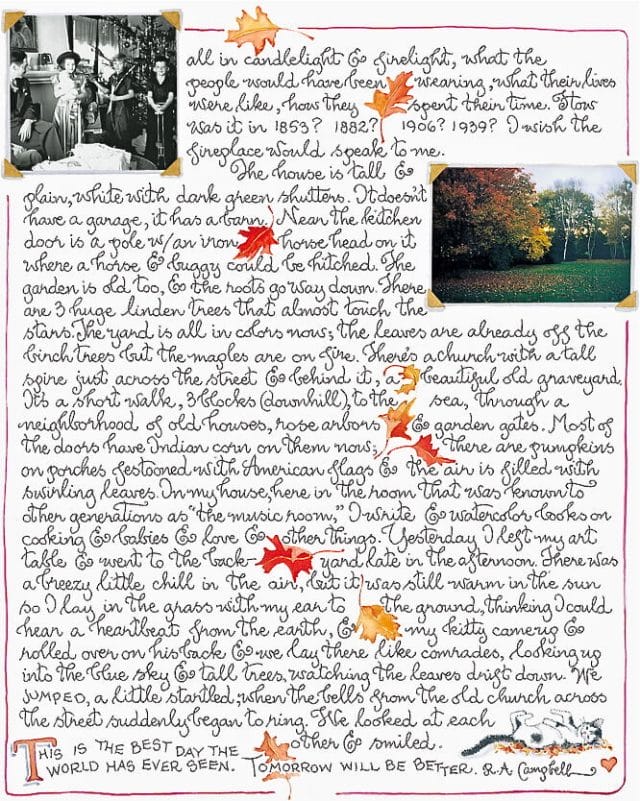 all in candlelight & firelight, what the
people would have been wearing, what their lives
were like, how they spent their time. How
was it in 1853? 1882? 1906? 1939? I wish the
fireplace would speak to me.
The house is tall &
plain, white with dark green shutters. It doesn't
have a garage, it has a barn. Near the kitchen
door is a pole w/an iron horse head on it
where a horse & buggy could be hitched. The
garden is old too, & the roots go way down. There
are 3 huge linden trees that almost touch the
stars. The yard is all in colors now; the leaves are already off the
birch trees but the maples are on fire. There's a church with a tall
spire just across the street & behind it, a beautiful old graveyard.
It's a short walk, 3 blocks (downhill), to the sea, through a
neighborhood of old houses, rose arbors & garden gates. Most of
the doors have Indian corn on them now; there are pumpkins
on porches festooned with American flags & the air is filled with
swirling leaves. In my house, here in the room that was known to
other generations as "the music room," I write & watercolor books on
cooking & babies & love & other things. Yesterday I left my art
table & went to the back-yard late in the afternoon. There was
a breezy little chill in the air, but it was still warm in the sun
so I lay in the grass with my ear to the ground, thinking I could
hear a heartbeat from the earth, & my kitty came up &
rolled over on his back & we lay there like comrades, looking up
into the blue sky & tall trees, watching the leaves drift down. We
JUMPED, a little startled, when the bells from the old church across
the street suddenly began to ring. We looked at each
other & smiled.
THIS IS THE BEST DAY THE
WORLD HAS EVER SEEN. TOMORROW WILL BE BETTER. R.A. Campbell